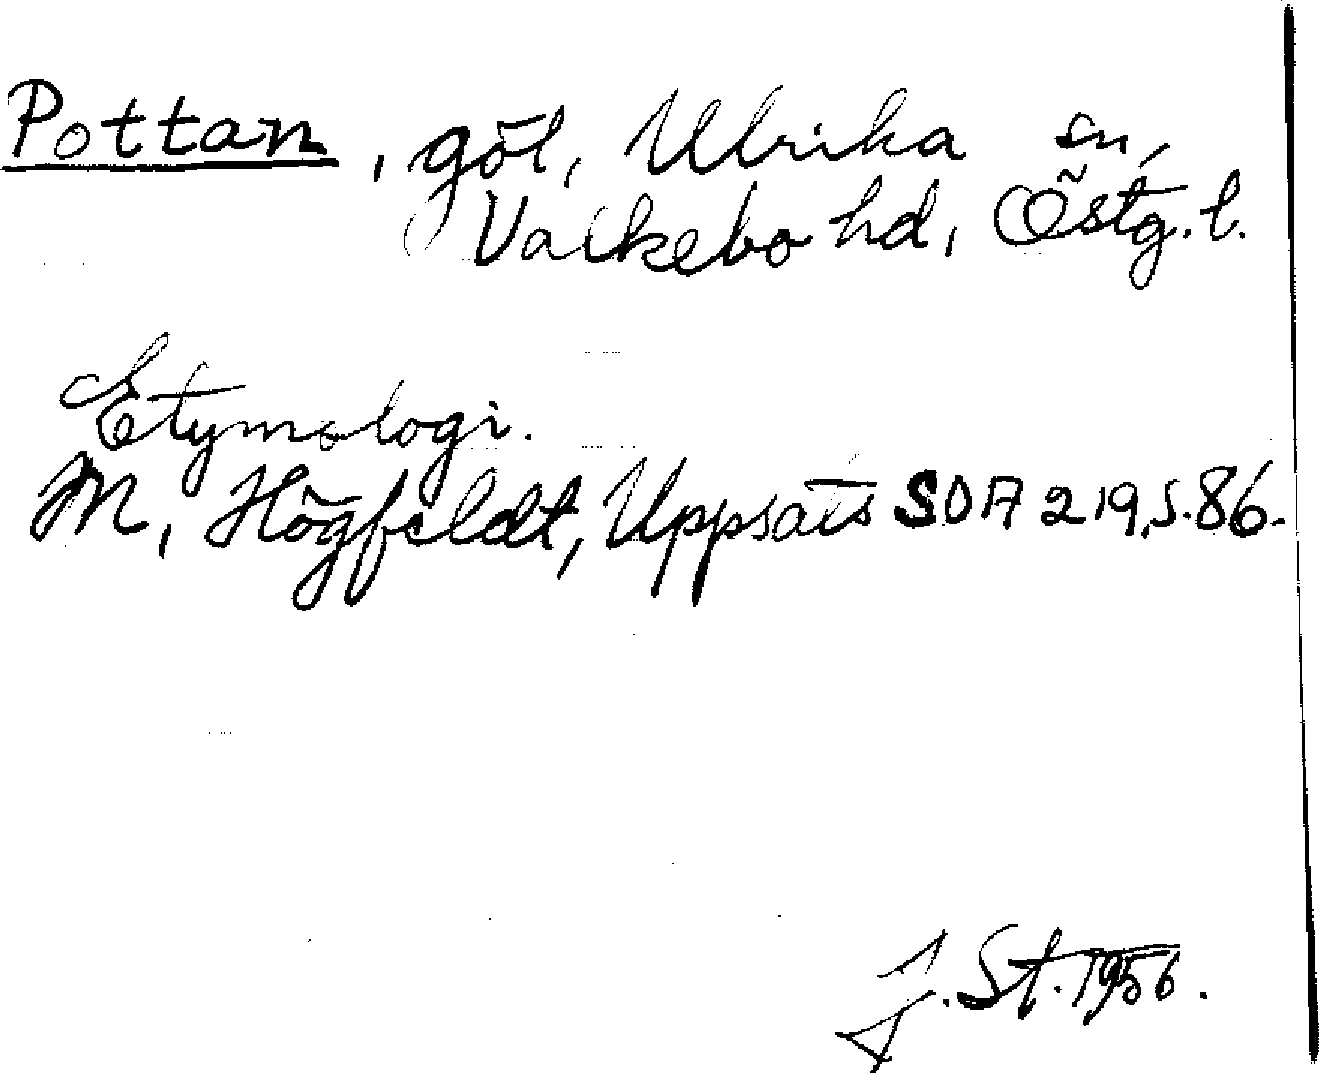 Pottan, göl, Ulrika sn,
Valkebo hd, Östg. l.
Etymologi.
M, Högfeldt, Uppsats SOA 219, s. 86.
J. St. 1956.